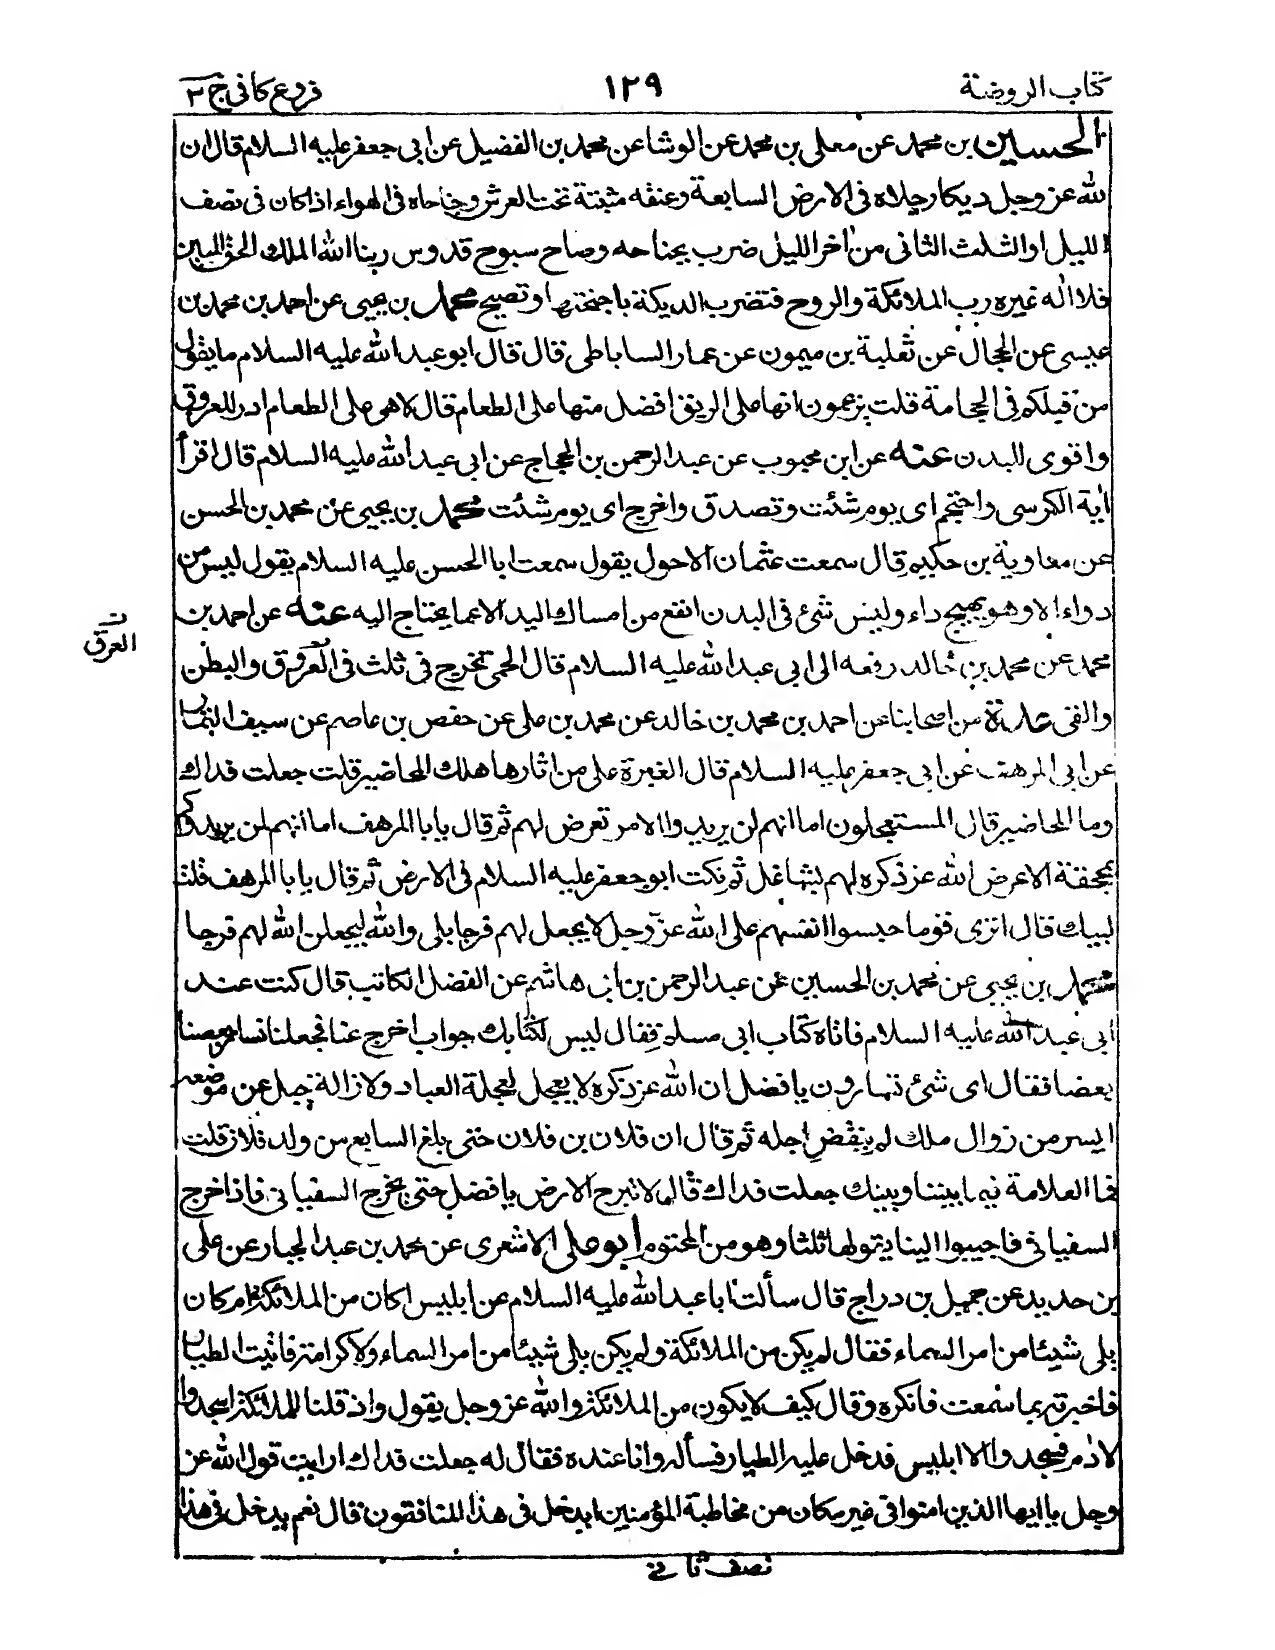 كتاب الروضة
١٢٩
فروع كافى ج ٣
الحسين بن محمد عن معلى بن محمد عن الوشا عن محمد بن الفضيل عن ابى جعفر عليه السلام قال ان
لله عز وجل ديكا رجلاه فى الارض السابعة وعنقه مثبتة تحت العرش وجناحاه فى الهواء اذا كان فى نصف
الليل او الثلث الثانى من اخر الليل ضرب بجناحه وصاح سبوح قدوس ربنا الله الملك الحق المبين
فلا اله غيره رب الملائكة والروح فتضرب الديكة باجنحتها وتصيح محمد بن يحيى عن احمد بن محمد بن
عيسى عن الحجال عن ثعلبة بن ميمون عن عمار الساباطى قال قال ابو عبد الله عليه السلام ما يقول
من قبلكم فى الحجامة قلت يزعمون انها على الريق افضل منها على الطعام قال لا هى على الطعام ادر للعروق
واقوى للبدن عنه عن ابن محبوب عن عبد الرحمن بن الحجاج عن ابى عبد الله عليه السلام قال اقرأ
اية الكرسى واحتجم اى يوم شئت وتصدق واخرج اى يوم شئت محمد بن يحيى عن محمد بن الحسن
عن معاوية بن حكيم قال سمعت عثمان الاحول يقول سمعت ابا الحسن عليه السلام يقول ليس من
دواء الا وهو يهيج داء وليس شئ فى البدن انفع من امساك اليد الا عما يحتاج اليه عنه عن احمد بن
العرق
محمد عن محمد بن خالد رفعه الى ابى عبد الله عليه السلام قال الحمى تخرج فى ثلث فى العروق والبطن
والقى عدة من اصحابنا عن احمد بن محمد بن خالد عن محمد بن على عن حفص بن عاصم عن سيف التمار
عن ابى المرهف عن ابى جعفر عليه السلام قال الغبرة على من اثارها هلك المحاضير قلت جعلت فداك
وما المحاضير قال المستعجلون اما انهم لن يريدوا الا من تعرض لهم ثم قال يابا المرهف اما انهم لن يريدوكم
بمجحفة الا عرض الله عز ذكره لهم بشاغل ثم نكت ابو جعفر عليه السلام فى الارض ثم قال يابا المرهف قلت
لبيك قال اترى قوما حبسوا انفسهم على الله عز وجل لا يجعل لهم فرجا بلى والله ليجعلن الله لهم فرجا
محمد بن يحيى عن محمد بن الحسين عن عبد الرحمن بن ابى هاشم عن الفضل الكاتب قال كنت عند
ابى عبد الله عليه السلام فاتاه كتاب ابى مسلم فقال ليس لكتابك جواب اخرج عنا فجعلنا نسار بعضنا
بعضا فقال اى شئ تسارون يا فضل ان الله عز ذكره لا يعجل لعجلة العباد ولازالة جبل عن موضعه
ايسر من زوال ملك لم ينقض اجله ثم قال ان فلان بن فلان حتى بلغ السابع من ولد فلان قلت
فما العلامة فيما بيننا وبينك جعلت فداك قال لا تبرح الارض يا فضل حتى يخرج السفيانى فاذا خرج
السفيانى فاجيبوا الينا يقولها ثلثا وهو من المحتوم ابو على الاشعرى عن محمد بن عبد الجبار عن على
بن حديد عن جميل بن دراج قال سألت ابا عبد الله عليه السلام عن ابليس اكان من الملائكة ام كان
يلى شيئا من امر السماء فقال لم يكن من الملائكة ولم يكن يلى شيئا من امر السماء ولا كرامة فاتيت الطيار
فاخبرته بما سمعت فانكره وقال كيف لا يكون من الملائكة والله عز وجل يقول واذ قلنا للملائكة اسجدوا
لادم فسجدوا الا ابليس فدخل عليه الطيار فسأله وانا عنده فقال له جعلت فداك ارايت قول الله عز
وجل يا ايها الذين امنوا فى غير مكان من مخاطبة المؤمنين ايدخل فى هذا المنافقون قال نعم يدخل فى هذا
نصف ثانى